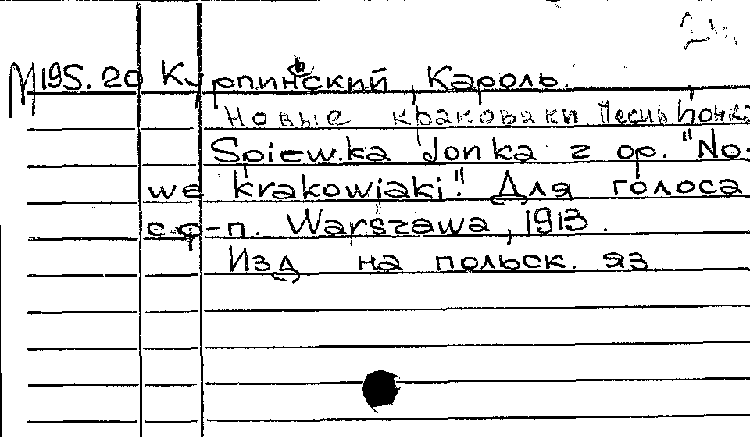 М195.20 Курпинский, Кароль.
Новые краковяки. Песнь Йонка
Spiewka Jonka z op. "No-
we krakowiaki". Для голоса
с ф-п. Warszawa, 1913.
Изд на польск. яз